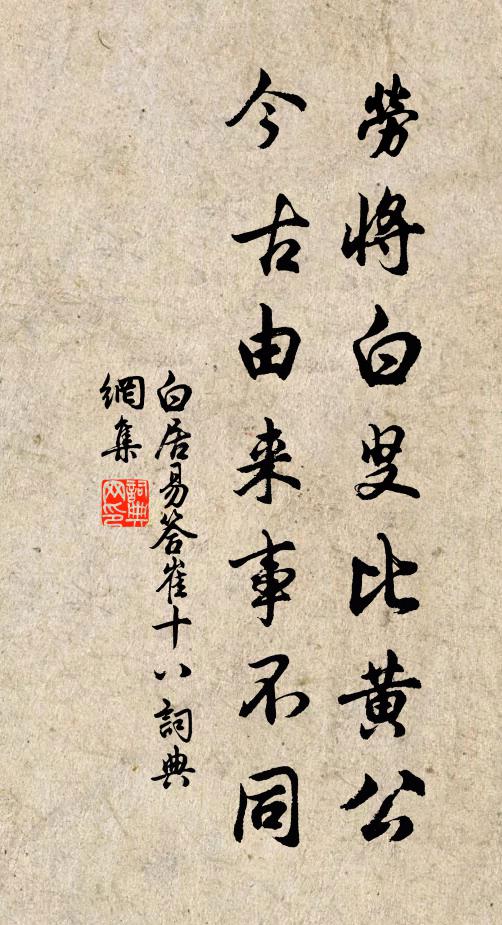 劳将白叟比黄公
今古由来事不同
白居易答崔十八詞典
網集
詞典
网印